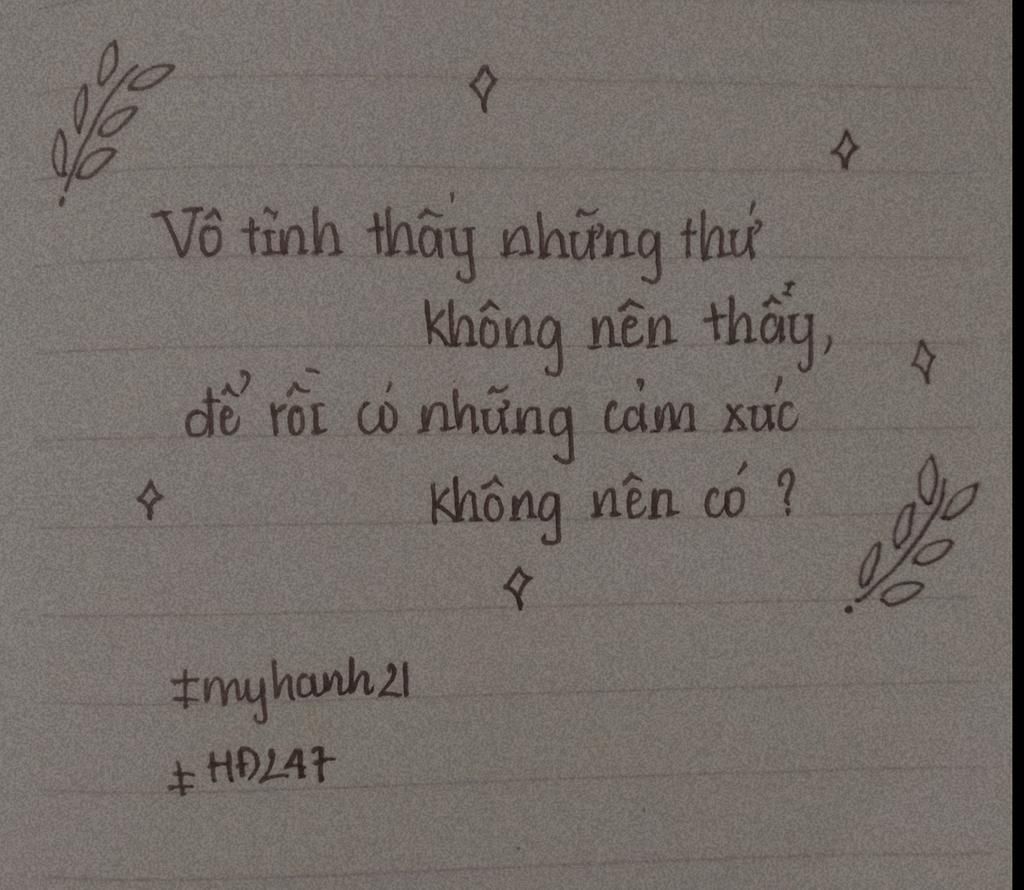 Vô tình thấy những thứ
không nên thấy,
để rồi có những cảm xúc
không nên có ?
#myhanh21
#HĐL47